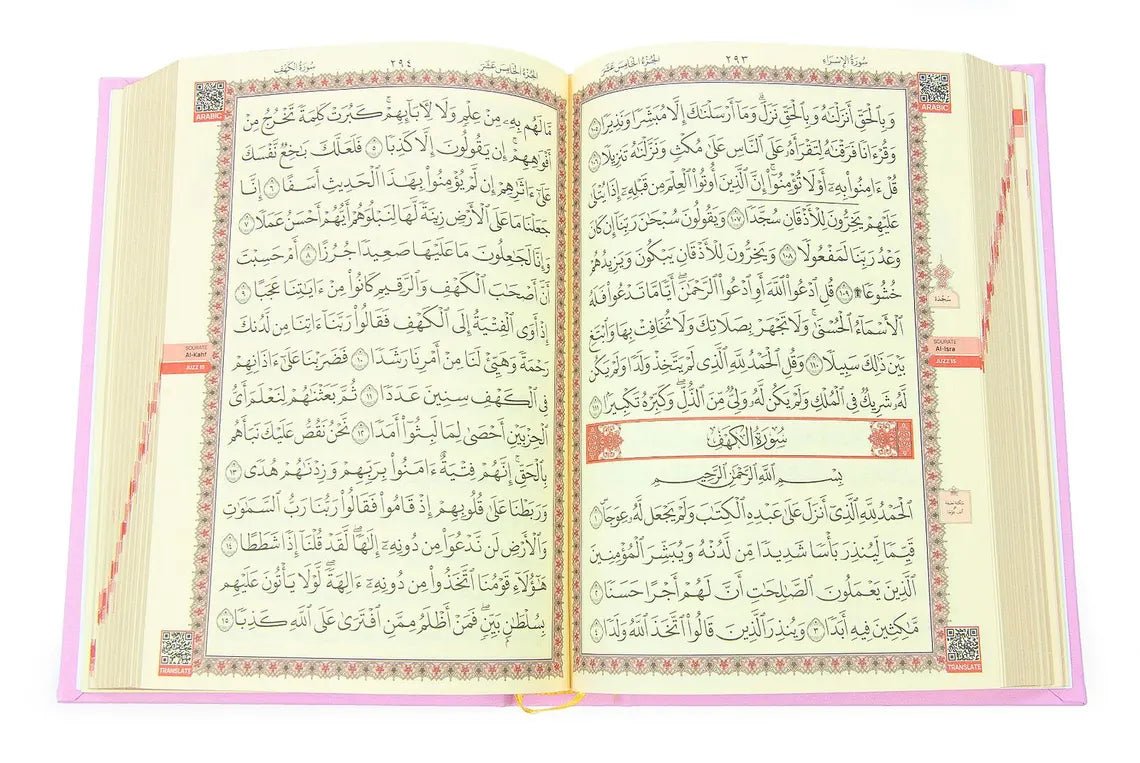 سُورَةُ الإِسْرَاءِ
٢٩٣
الجُزْءُ الخَامِسَ عَشَرَ
ARABIC
وَبِٱلْحَقِّ أَنزَلْنَٰهُ وَبِٱلْحَقِّ نَزَلَۗ وَمَآ أَرْسَلْنَٰكَ إِلَّا مُبَشِّرًا وَنَذِيرًا ١٠٥
وَقُرْءَانًا فَرَقْنَٰهُ لِتَقْرَأَهُۥ عَلَى ٱلنَّاسِ عَلَىٰ مُكْثٍ وَنَزَّلْنَٰهُ تَنزِيلًا ١٠٦
قُلْ ءَامِنُوا۟ بِهِۦٓ أَوْ لَا تُؤْمِنُوٓا۟ۚ إِنَّ ٱلَّذِينَ أُوتُوا۟ ٱلْعِلْمَ مِن قَبْلِهِۦٓ إِذَا يُتْلَىٰ
عَلَيْهِمْ يَخِرُّونَ لِلْأَذْقَانِ سُجَّدًا ١٠٧ وَيَقُولُونَ سُبْحَٰنَ رَبِّنَآ إِن كَانَ
وَعْدُ رَبِّنَا لَمَفْعُولًا ١٠٨ وَيَخِرُّونَ لِلْأَذْقَانِ يَبْكُونَ وَيَزِيدُهُمْ
خُشُوعًا ۩ ١٠٩ قُلِ ٱدْعُوا۟ ٱللَّهَ أَوِ ٱدْعُوا۟ ٱلرَّحْمَٰنَۖ أَيًّا مَّا تَدْعُوا۟ فَلَهُ
ٱلْأَسْمَآءُ ٱلْحُسْنَىٰۚ وَلَا تَجْهَرْ بِصَلَاتِكَ وَلَا تُخَافِتْ بِهَا وَٱبْتَغِ
بَيْنَ ذَٰلِكَ سَبِيلًا ١١٠ وَقُلِ ٱلْحَمْدُ لِلَّهِ ٱلَّذِى لَمْ يَتَّخِذْ وَلَدًا وَلَمْ يَكُن
لَّهُۥ شَرِيكٌ فِى ٱلْمُلْكِ وَلَمْ يَكُن لَّهُۥ وَلِىٌّ مِّنَ ٱلذُّلِّۖ وَكَبِّرْهُ تَكْبِيرًۢا ١١١
سُورَةُ الكَهْفِ
بِسْمِ ٱللَّهِ ٱلرَّحْمَٰنِ ٱلرَّحِيمِ
ٱلْحَمْدُ لِلَّهِ ٱلَّذِىٓ أَنزَلَ عَلَىٰ عَبْدِهِ ٱلْكِتَٰبَ وَلَمْ يَجْعَل لَّهُۥ عِوَجَا ١
قَيِّمًا لِّيُنذِرَ بَأْسًا شَدِيدًا مِّن لَّدُنْهُ وَيُبَشِّرَ ٱلْمُؤْمِنِينَ
ٱلَّذِينَ يَعْمَلُونَ ٱلصَّٰلِحَٰتِ أَنَّ لَهُمْ أَجْرًا حَسَنًا ٢
مَّٰكِثِينَ فِيهِ أَبَدًا ٣ وَيُنذِرَ ٱلَّذِينَ قَالُوا۟ ٱتَّخَذَ ٱللَّهُ وَلَدًا ٤
سَجْدَة
SOURATE
Al-Isra
JUZZ 15
TRANSLATE
الجُزْءُ الخَامِسَ عَشَرَ
٢٩٤
سُورَةُ الكَهْفِ
ARABIC
مَّا لَهُم بِهِۦ مِنْ عِلْمٍ وَلَا لِـَٔابَآئِهِمْۚ كَبُرَتْ كَلِمَةً تَخْرُجُ مِنْ
أَفْوَٰهِهِمْۚ إِن يَقُولُونَ إِلَّا كَذِبًا ٥ فَلَعَلَّكَ بَٰخِعٌ نَّفْسَكَ
عَلَىٰٓ ءَاثَٰرِهِمْ إِن لَّمْ يُؤْمِنُوا۟ بِهَٰذَا ٱلْحَدِيثِ أَسَفًا ٦ إِنَّا
جَعَلْنَا مَا عَلَى ٱلْأَرْضِ زِينَةً لَّهَا لِنَبْلُوَهُمْ أَيُّهُمْ أَحْسَنُ عَمَلًا ٧
وَإِنَّا لَجَٰعِلُونَ مَا عَلَيْهَا صَعِيدًا جُرُزًا ٨ أَمْ حَسِبْتَ
أَنَّ أَصْحَٰبَ ٱلْكَهْفِ وَٱلرَّقِيمِ كَانُوا۟ مِنْ ءَايَٰتِنَا عَجَبًا ٩
إِذْ أَوَى ٱلْفِتْيَةُ إِلَى ٱلْكَهْفِ فَقَالُوا۟ رَبَّنَآ ءَاتِنَا مِن لَّدُنكَ
رَحْمَةً وَهَيِّئْ لَنَا مِنْ أَمْرِنَا رَشَدًا ١٠ فَضَرَبْنَا عَلَىٰٓ ءَاذَانِهِمْ
فِى ٱلْكَهْفِ سِنِينَ عَدَدًا ١١ ثُمَّ بَعَثْنَٰهُمْ لِنَعْلَمَ أَىُّ
ٱلْحِزْبَيْنِ أَحْصَىٰ لِمَا لَبِثُوٓا۟ أَمَدًا ١٢ نَّحْنُ نَقُصُّ عَلَيْكَ نَبَأَهُم
بِٱلْحَقِّۚ إِنَّهُمْ فِتْيَةٌ ءَامَنُوا۟ بِرَبِّهِمْ وَزِدْنَٰهُمْ هُدًى ١٣
وَرَبَطْنَا عَلَىٰ قُلُوبِهِمْ إِذْ قَامُوا۟ فَقَالُوا۟ رَبُّنَا رَبُّ ٱلسَّمَٰوَٰتِ
وَٱلْأَرْضِ لَن نَّدْعُوَا۟ مِن دُونِهِۦٓ إِلَٰهًاۖ لَّقَدْ قُلْنَآ إِذًا شَطَطًا ١٤
هَٰٓؤُلَآءِ قَوْمُنَا ٱتَّخَذُوا۟ مِن دُونِهِۦٓ ءَالِهَةًۖ لَّوْلَا يَأْتُونَ عَلَيْهِم
بِسُلْطَٰنٍۭ بَيِّنٍۖ فَمَنْ أَظْلَمُ مِمَّنِ ٱفْتَرَىٰ عَلَى ٱللَّهِ كَذِبًا ١٥
SOURATE
Al-Kahf
JUZZ 15
TRANSLATE